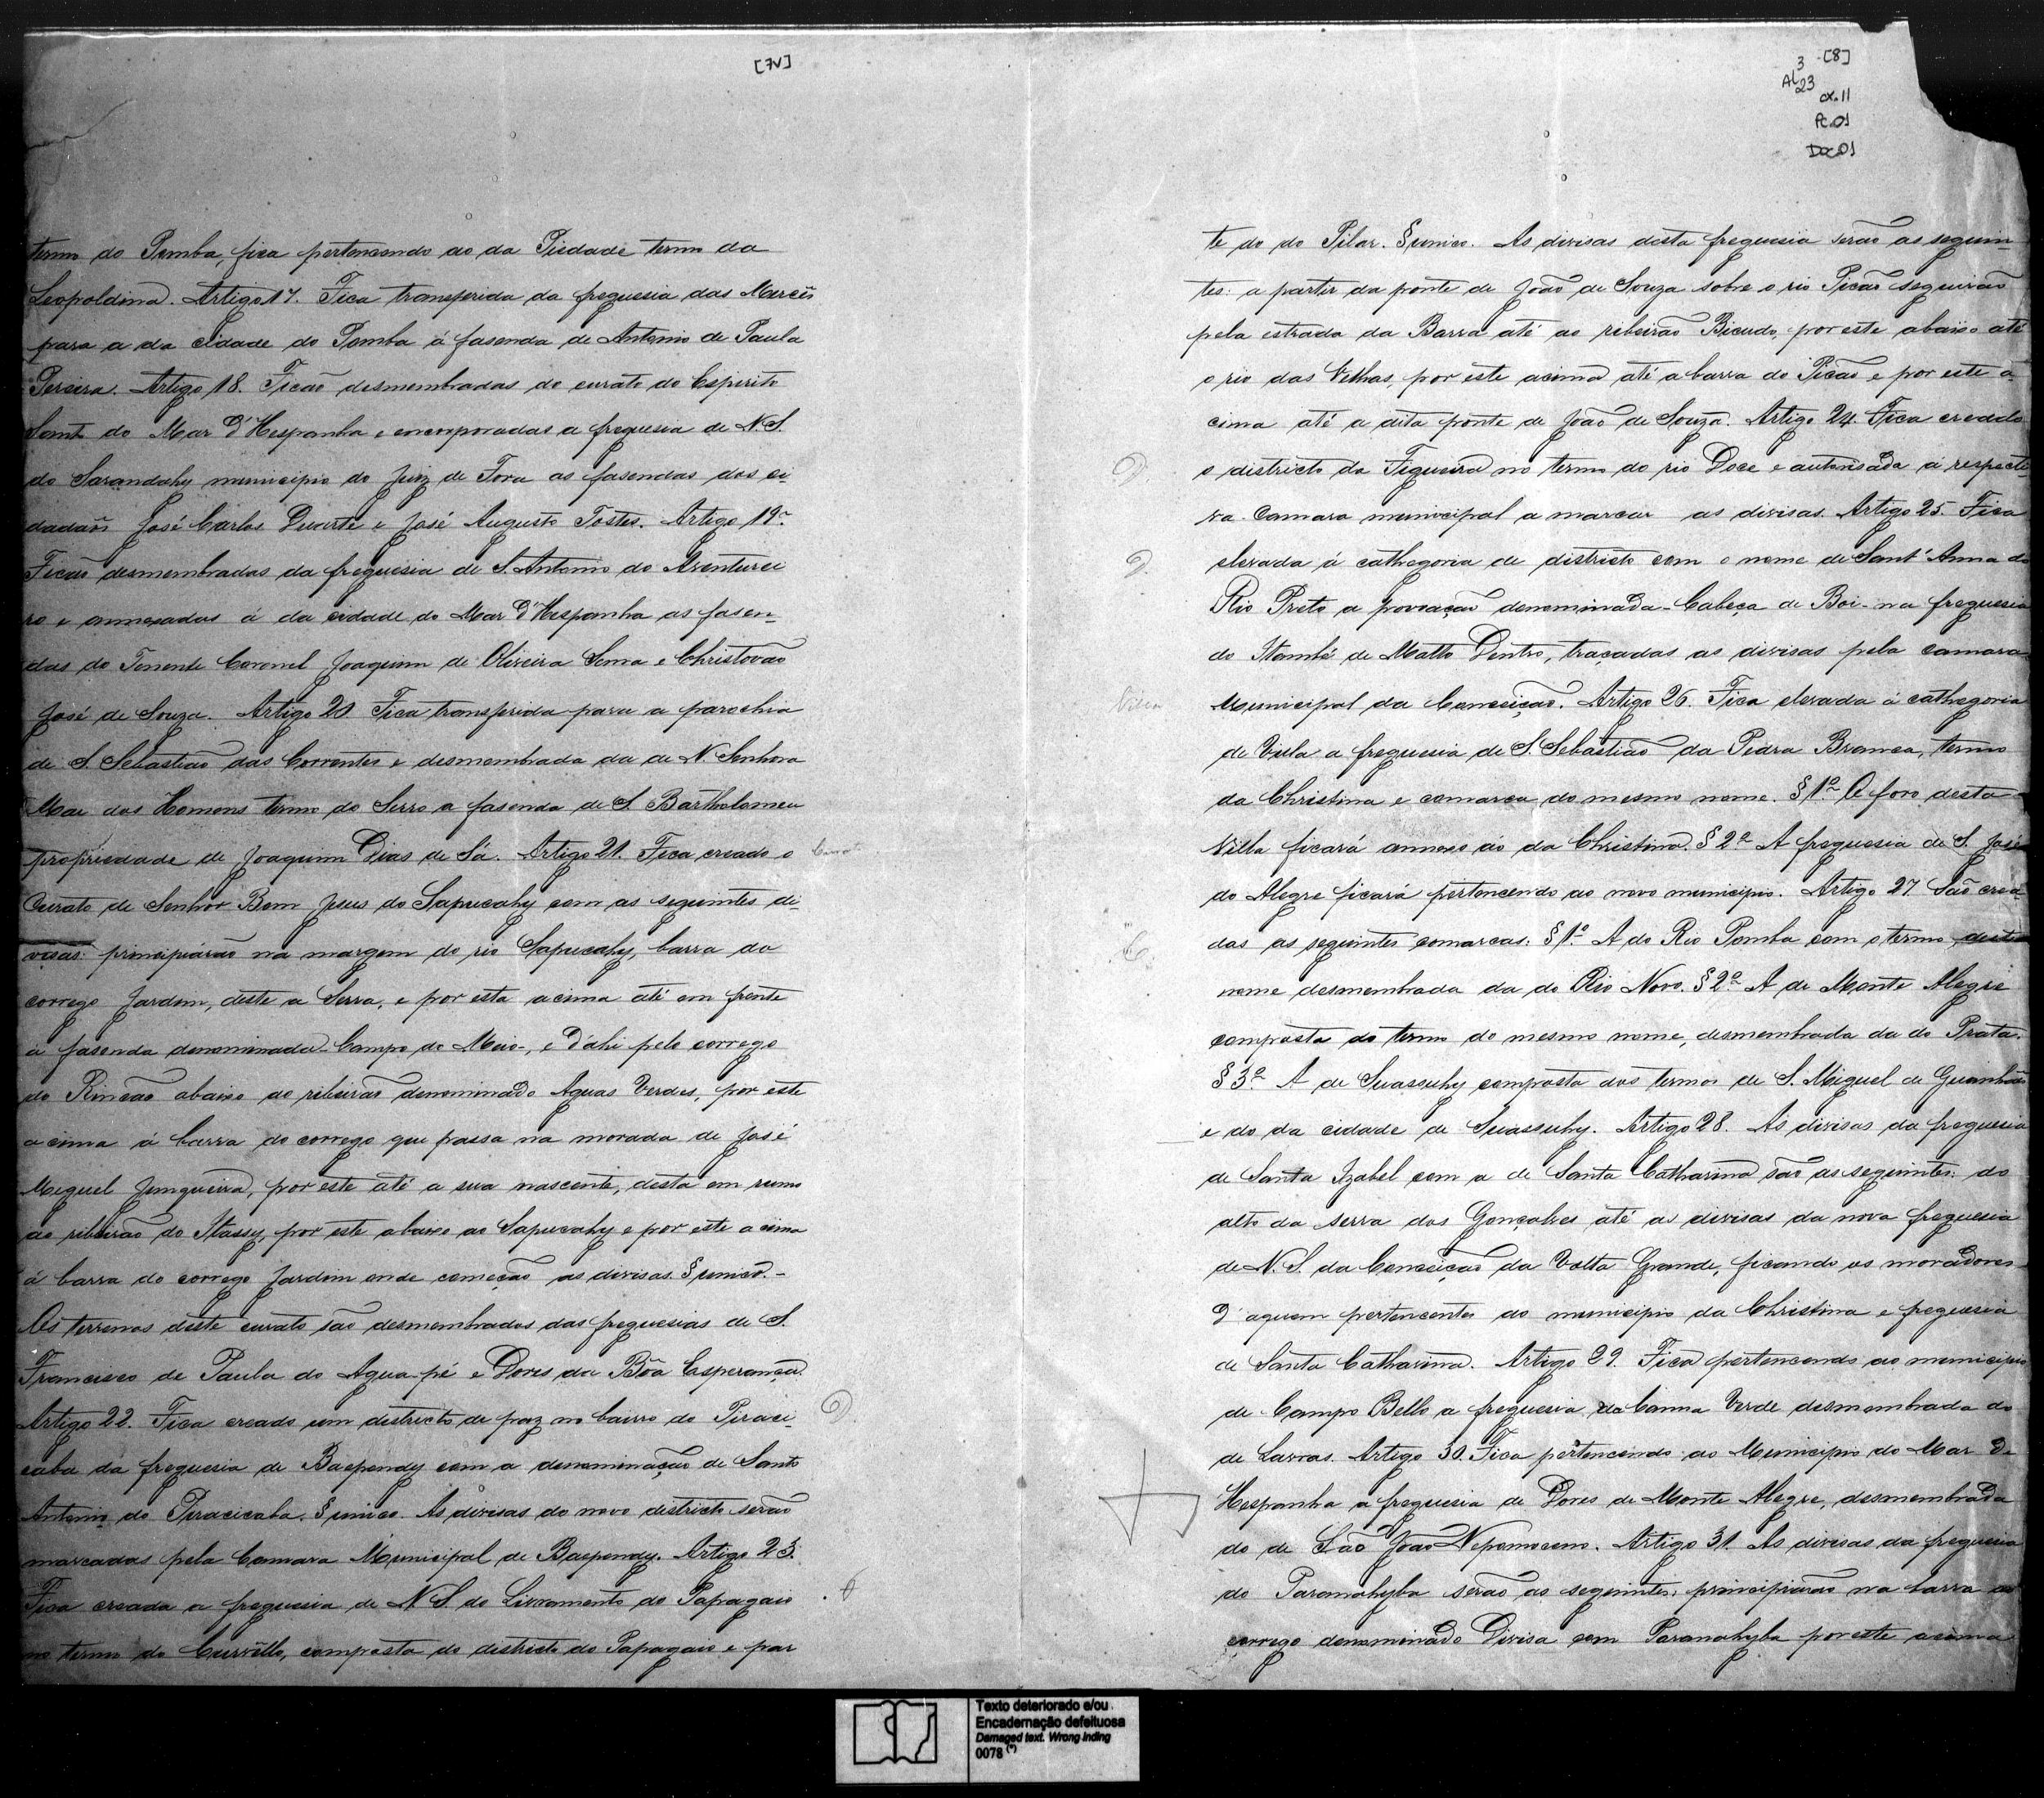 [7V]
termo do Pomba, fica pertencendo ao da Piedade termo da
Leopoldina. Artigo 17. Fica transferida da freguesia das Mercês
para a da cidade do Pomba á fasenda de Antonio de Paula
Pereira. Artigo 18. Ficão desmembradas do curato do Espirito
Santo do Mar d'Hespanha e encorporadas a freguesia de N. S.
do Sarandahy municipio do Juiz de Fora as fasendas dos ci-
dadãos José Carlos Duarte e José Augusto Tostes. Artigo 19º
Ficão desmembradas da freguesia de S. Antonio do Aventurei
ro e annexadas á da cidade do Mar d'Hespanha as fasen-
das do Tenente Coronel Joaquim de Oliveira Sena e Christovão
José de Souza. Artigo 20 Fica transferida para a parochia
de S. Sebastião das Correntes e desmembrada da de N. Senhora
Mae dos Homens termo do Serro a fasenda de S. Bartholomeu
propriedade de Joaquim Dias de Sá. Artigo 21. Fica creado o
Curato
Curato de Senhor Bom Jesus do Sapucahy com as seguintes di-
visas: principiárão na margem do rio Sapucahy, barra do
corrego Jardim, deste a Serra, e por esta acima até em frente
a fasenda denominada - Campo do Meio -, e d'ahi pelo corrego
do Rincão abaixo ao ribeirão denominado Aguas Verdes, por este
acima á barra do corrego que passa na morada de José
Miguel Junqueira, por este até a sua nascente, desta em rumo
ao ribeirão do Itassy, por este abaixo ao Sapucahy e por este acima
á barra do corrego Jardim onde começão as divisas. § unico. -
Os terrenos deste curato são desmembrados das freguesias de S.
Francisco de Paula do Agua-pé e Dores da Bôa Esperança.
Artigo 22. Fica creado um districto de paz no bairro do Piraci
D.
caba da freguesia de Baependy com a denominação de Santo
Antonio do Piracicaba. § unico. As divisas do novo districto serão
marcadas pela Camara Municipal de Baependy. Artigo 23.
Fica creada a freguesia de N. S. do Livramento do Papagaio
no termo do Curvello, composta do districto do Papagaio e par
[8]
3
Al 23
cx. 11
Pc. 01
Doc. 01
te do do Pilar. § unico. As divisas desta freguesia serão as seguin-
tes: a partir da ponte de João de Souza sobre o rio Picão seguirão
pela estrada da Barra até ao ribeirão Bicudo, por este abaixo até
o rio das Velhas, por este acima até a barra do Picão e por este a-
cima até a dita ponte de João de Souza. Artigo 24. Fica creado
D.
o districto da Figueira no termo do rio Doce e autorisada a respecti
va Camara municipal a marcar as divisas. Artigo 25. Fica
D.
elevada á cathegoria de districto com o nome de Sant'Anna do
Rio Preto a povoação denominada - Cabeça de Boi - na freguesia
do Itambé de Matto Dentro, traçadas as divisas pela camara
Villa
Municipal da Conceição. Artigo 26. Fica elevada á cathegoria
de Villa a freguesia de S. Sebastião da Pedra Branca, termo
da Christina e comarca do mesmo nome. § 1º O foro desta
Villa ficará annexo ao da Christina. § 2º A freguesia de S. José
do Alegre ficará pertencendo ao novo municipio. Artigo 27 São crea-
C.
das as seguintes comarcas: § 1º A do Rio Pomba com o termo deste
nome desmembrada da do Rio Novo. § 2º A de Monte Alegre
composta do termo do mesmo nome, desmembrada da do Prata.
§ 3º A de Suassuhy composta dos termos de S. Miguel de Guanhães
e do da cidade de Suassuhy. Artigo 28. As divisas da freguesia
de Santa Izabel com a de Santa Catharina são as seguintes: do
alto da serra dos Gonçalves até as divisas da nova freguesia
de N. S. da Conceição da Volta Grande, ficando os moradores
d'aquem pertencentes ao municipio da Christina e freguesia
de Santa Catharina. Artigo 29. Fica pertencendo ao municipio
de Campo Bello a freguesia da Canna Verde desmembrada do
de Lavras. Artigo 30. Fica pertencendo ao Municipio do Mar de
Hespanha a freguesia de Dores de Monte Alegre, desmembrada
do de São João Nepomoceno. Artigo 31. As divisas da freguesia
do Paranahyba serão as seguintes: principiarão na barra do
corrego denominado Divisa com Paranahyba por este acima
Texto deteriorado e/ou
Encadernação defeituosa
Damaged text. Wrong inding
0078 (*)